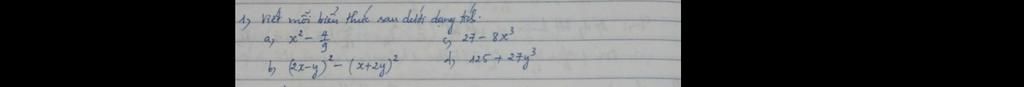 1, Viết mỗi biểu thức sau dưới dạng tích.
a, x² - 4/9 c, 27 - 8x³
b, (2x-y)² - (x+2y)² d, 125 + 27y³